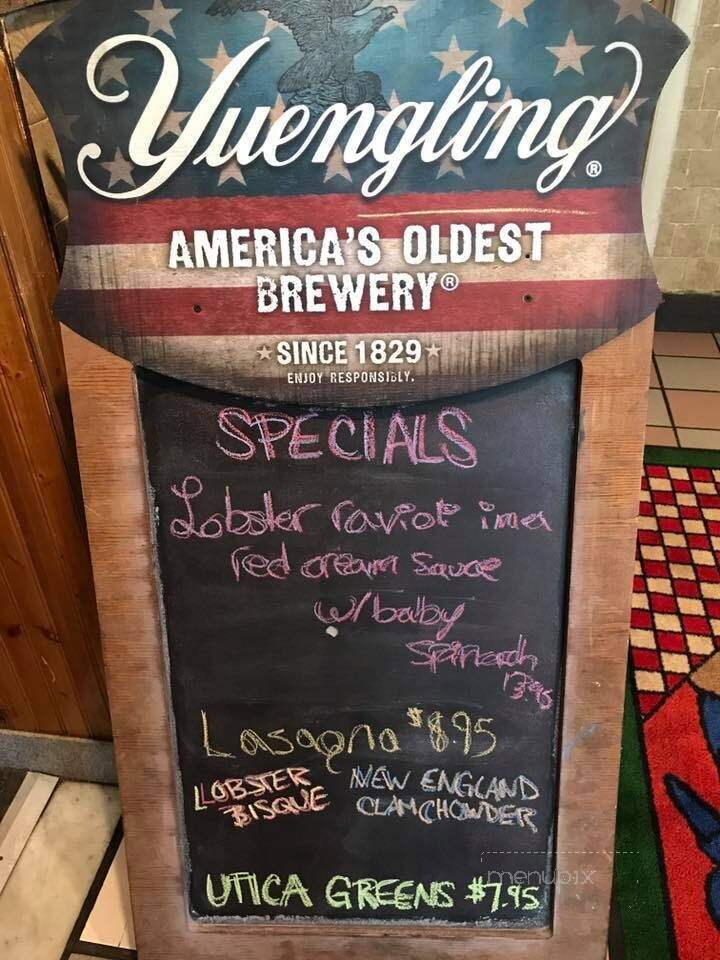 Yuengling®
AMERICA'S OLDEST
BREWERY®
SINCE 1829
ENJOY RESPONSIBLY.
SPECIALS
Lobster ravioli in a
red cream sauce
w/ baby
Spinach
13.95
Lasagna $8.95
LOBSTER NEW ENGLAND
BISQUE CLAM CHOWDER
UTICA GREENS $7.95
menubix